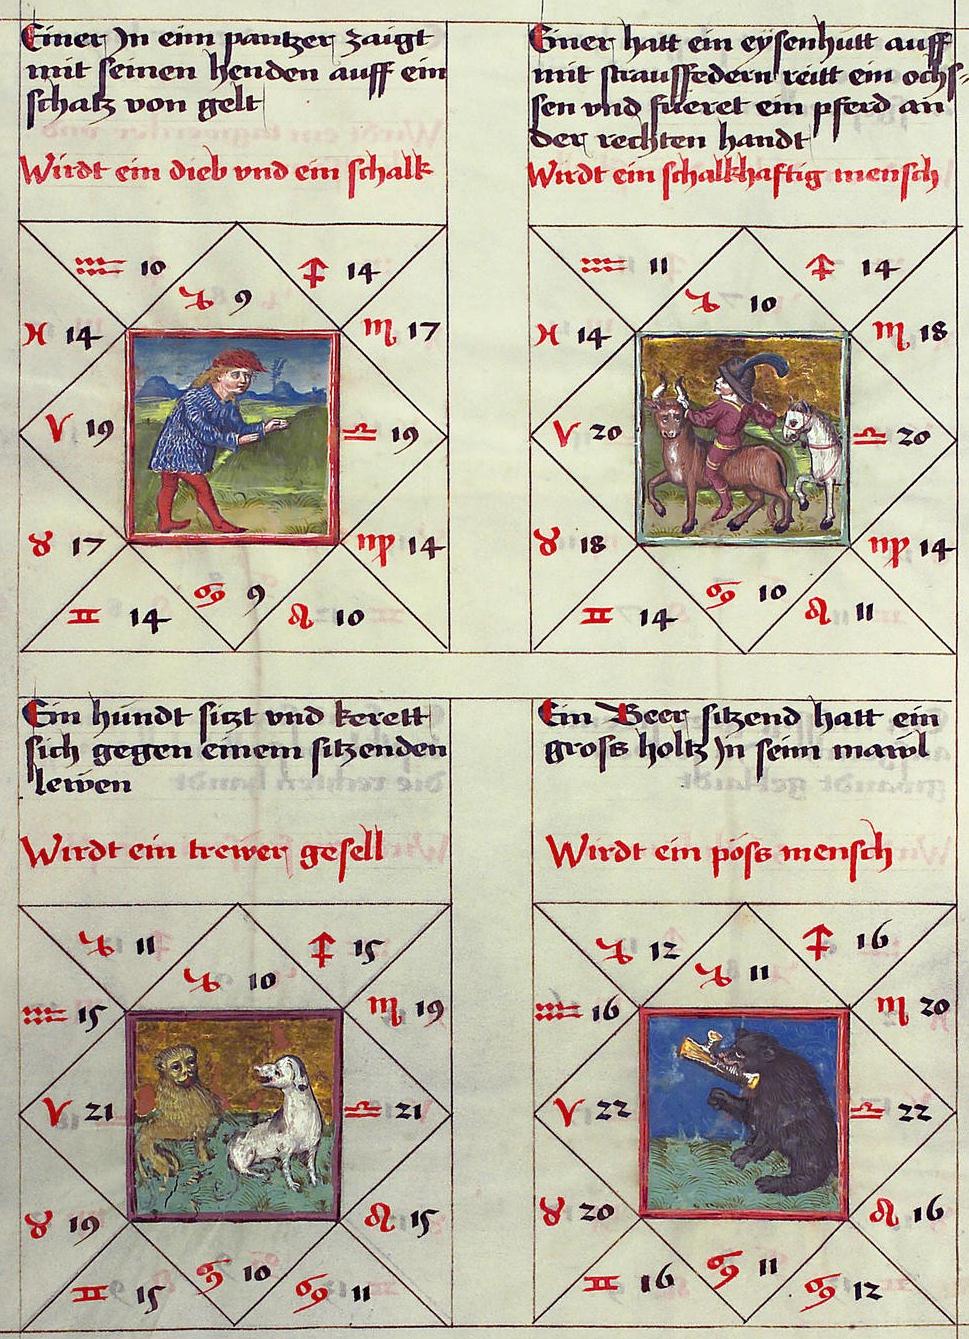 Einer Jn eim pantzer zaigt
mit seinen henden auff ein
schatz von gelt
Wirdt ein dieb vnd ein schalk
♒ 10
♑ 9
♐ 14
♓ 14
♏ 17
♈ 19
♎ 19
♉ 17
♍ 14
♊ 14
♋ 9
♌ 10
Einer hatt ein eysenhutt auff
mit straussfedern reitt ein ochs-
sen vnd fueret ein pferd an
der rechten handt
Wirdt ein schalkhafftig mensch
♒ 11
♑ 10
♐ 14
♓ 14
♏ 18
♈ 20
♎ 20
♉ 18
♍ 14
♊ 14
♋ 10
♌ 11
Ein hundt sizt vnd kerett
sich gegen einem sitzenden
lewen
Wirdt ein trewer gesell
♑ 11
♑ 10
♐ 15
♒ 15
♏ 19
♈ 21
♎ 21
♉ 19
♌ 15
♊ 15
♋ 10
♋ 11
Ein Beer sitzend hatt ein
gross holtz Jn seim mawl
Wirdt ein pöss mensch
♑ 12
♑ 11
♐ 16
♒ 16
♏ 20
♈ 22
♎ 22
♉ 20
♌ 16
♊ 16
♋ 11
♋ 12